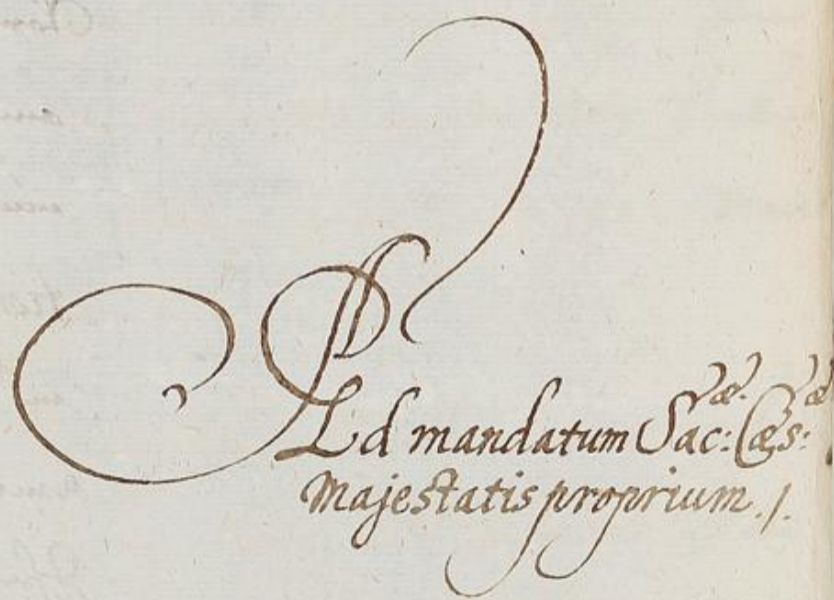 Ad mandatum Sac: ræ. Cæs: ræ
Majestatis proprium ./.